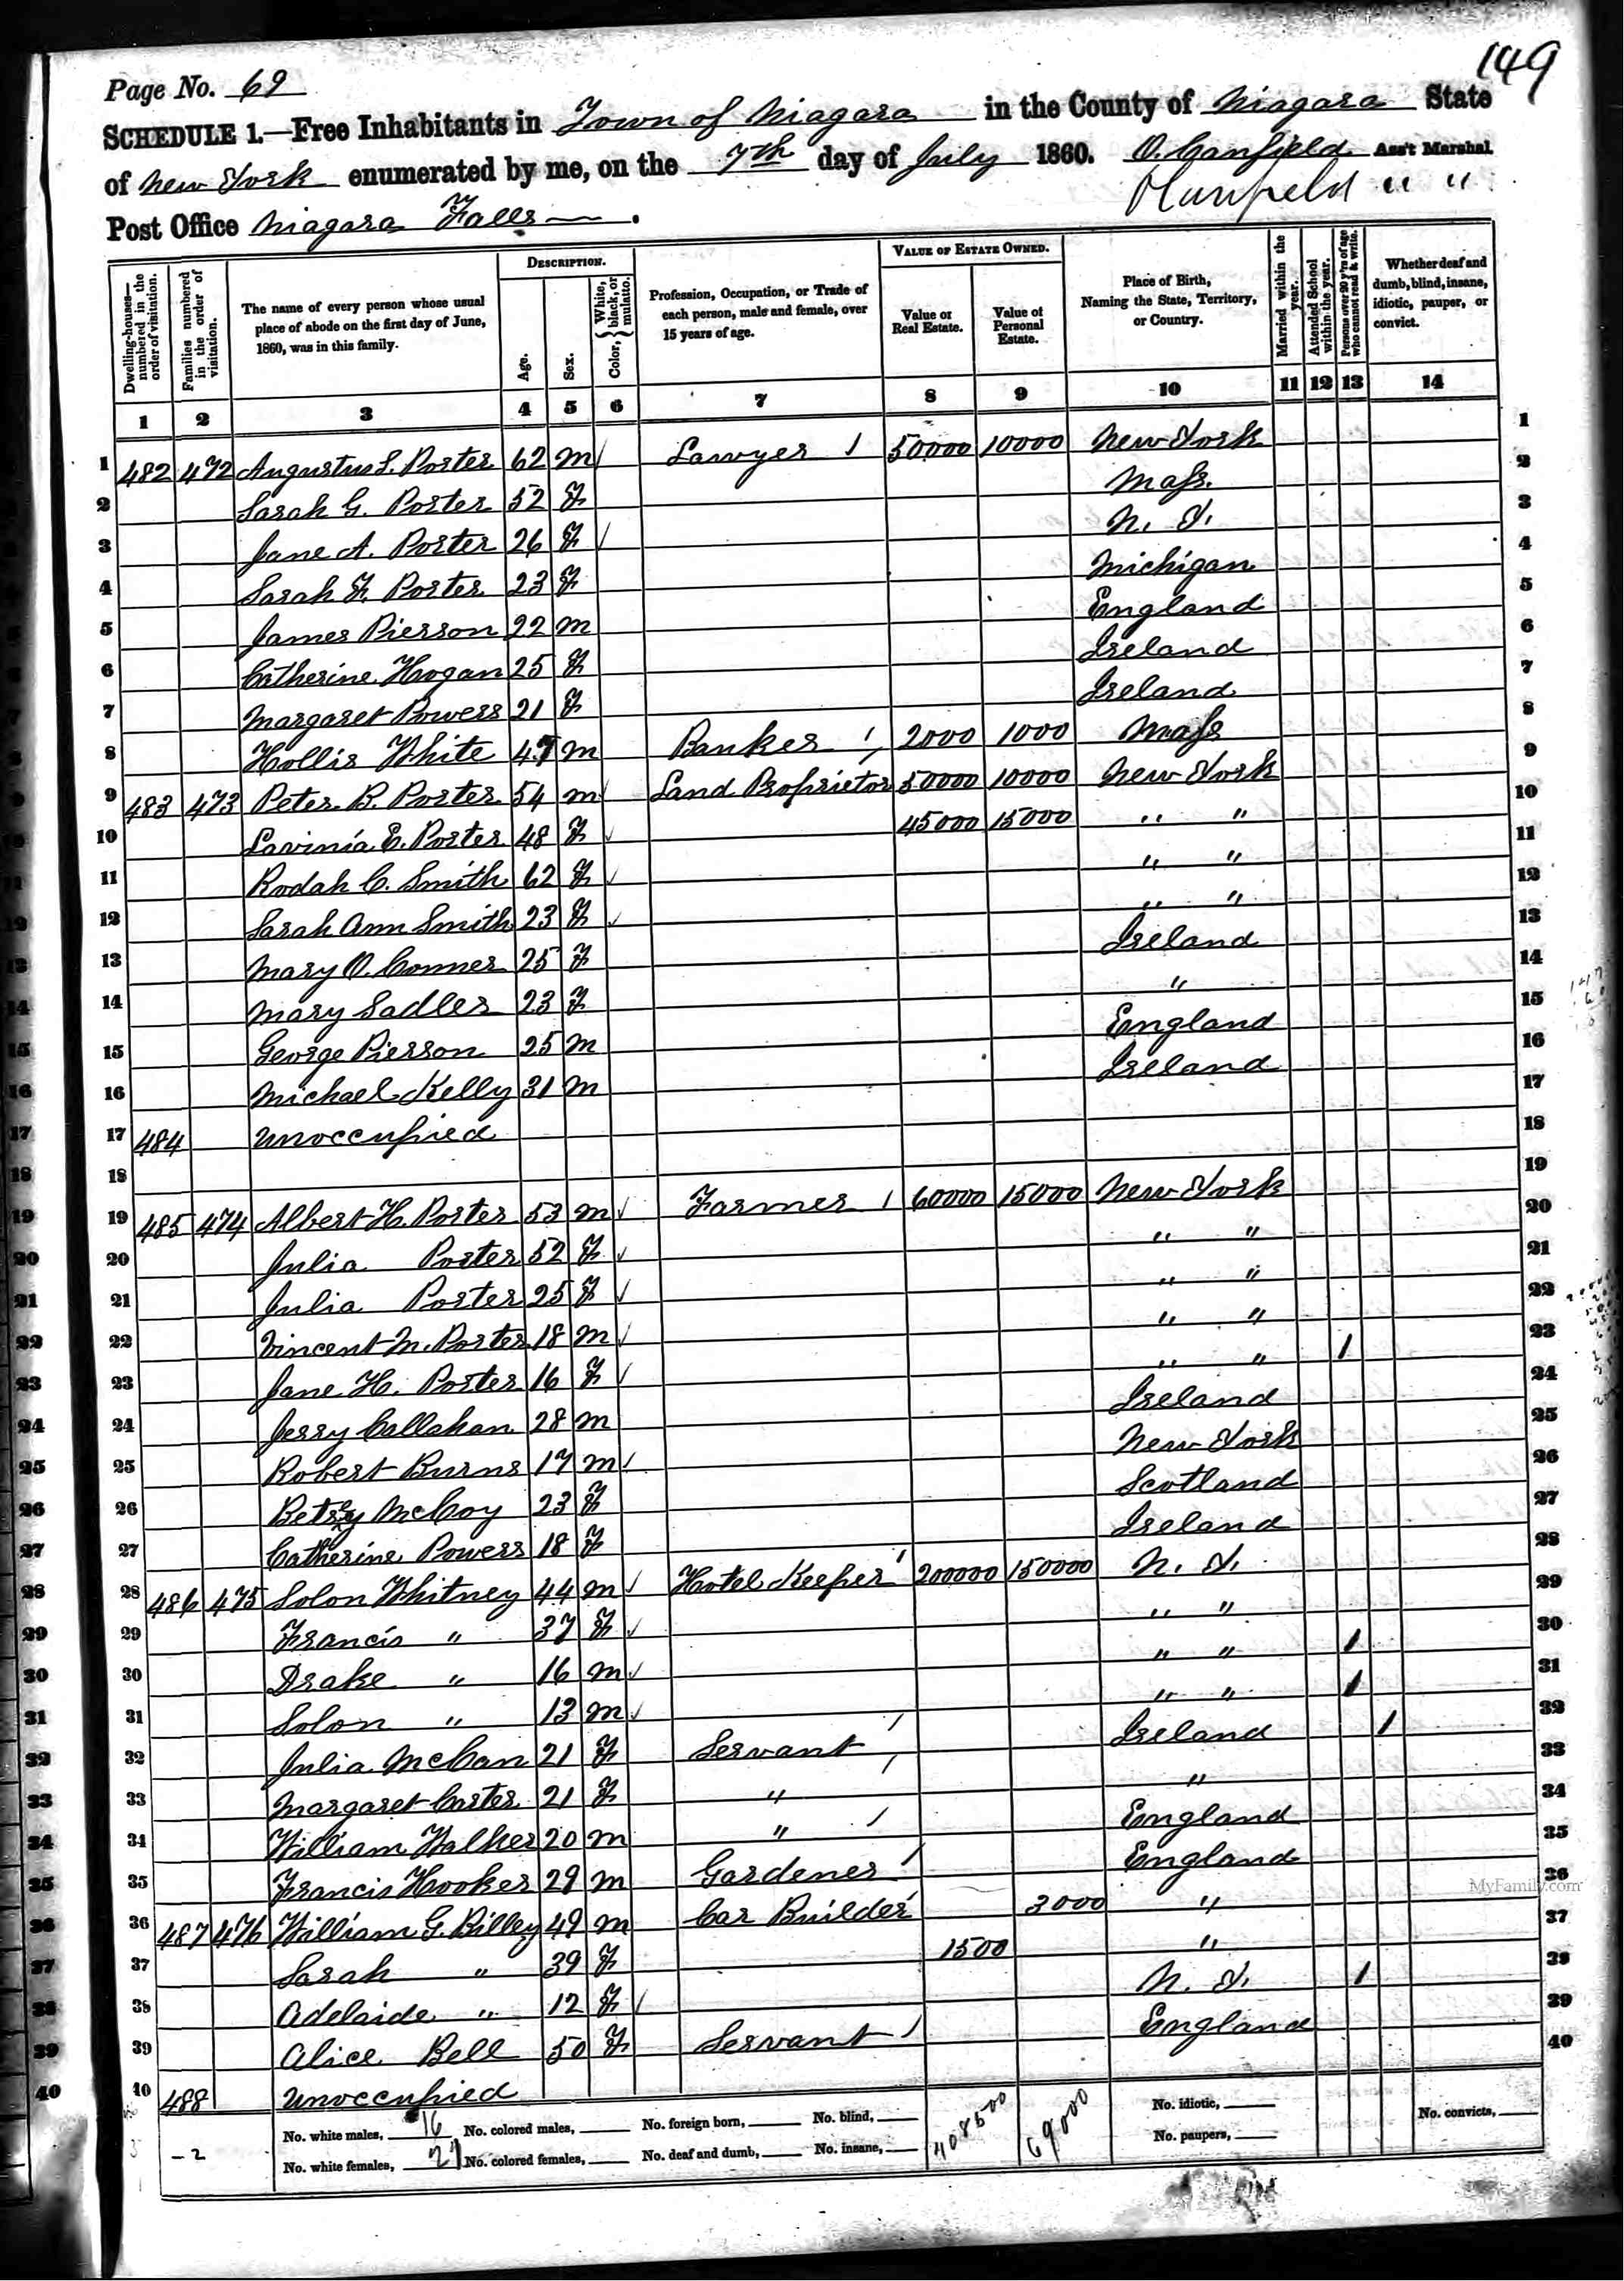 149
Page No. 69
SCHEDULE 1.—Free Inhabitants in Town of Niagara in the County of Niagara State
of New York enumerated by me, on the 7th day of July 1860. O. Canfield Ass't Marshal.
Post Office Niagara Falls.
DESCRIPTION. VALUE OF ESTATE OWNED.
Dwelling-houses—numbered in the order of visitation. Families numbered in the order of visitation. The name of every person whose usual place of abode on the first day of June, 1860, was in this family. Age. Sex. Color, {White, black, or mulatto. Profession, Occupation, or Trade of each person, male and female, over 15 years of age. Value of Real Estate. Value of Personal Estate. Place of Birth, Naming the State, Territory, or Country. Married within the year. Attended School within the year. Persons over 20 y'rs of age who cannot read & write. Whether deaf and dumb, blind, insane, idiotic, pauper, or convict.
1 2 3 4 5 6 7 8 9 10 11 12 13 14
1 482 472 Augustus S. Porter 62 m Lawyer 1 50000 10000 New York
2 Sarah G. Porter 52 F Mass.
3 Jane A. Porter 26 F N. Y.
4 Sarah F. Porter 23 F Michigan
5 James Pierson 22 m England
6 Catherine Hogan 25 F Ireland
7 Margaret Powers 21 F Ireland
8 Hollis White 47 m Banker 1 2000 1000 Mass
9 483 473 Peter B. Porter 54 m Land Proprietor 50000 10000 New York
10 Lavinia E. Porter 48 F 45000 15000 " "
11 Rodah C. Smith 62 F " "
12 Sarah Ann Smith 23 F " "
13 Mary O. Conner 25 F Ireland
14 Mary Sadler 23 F "
15 George Pierson 25 m England
16 Michael Kelly 31 m Ireland
17 484 Unoccupied
18
19 485 474 Albert H. Porter 53 m Farmer 1 60000 15000 New York
20 Julia Porter 52 F " "
21 Julia Porter 25 F " "
22 Vincent M. Porter 18 m " "
23 Jane H. Porter 16 F " " 1
24 Jerry Callahan 28 m Ireland
25 Robert Burns 17 m New York
26 Betsy McCoy 23 F Scotland
27 Catherine Powers 18 F Ireland
28 486 475 Solon Whitney 44 m Hotel Keeper 1 200000 150000 N. Y.
29 Francis " 37 F " "
30 Drake " 16 m " " 1
31 Solon " 13 m " " 1
32 Julia McCan 21 F Servant 1 Ireland 1
33 Margaret Carter 21 F " 1 "
34 William Walker 20 m " 1 England
35 Francis Hooker 29 m Gardener 1 England
36 487 476 William G. Billey 49 m Car Builder 3000 "
37 Sarah " 39 F 1500 "
38 Adelaide " 12 F N. Y. 1
39 Alice Bell 50 F Servant 1 England
40 488 Unoccupied
No. white males, 16 No. colored males, No. foreign born, No. blind, 408500 69000 No. idiotic, No. convicts,
-2 No. white females, 21 No. colored females, No. deaf and dumb, No. insane, No. paupers,
MyFamily.com